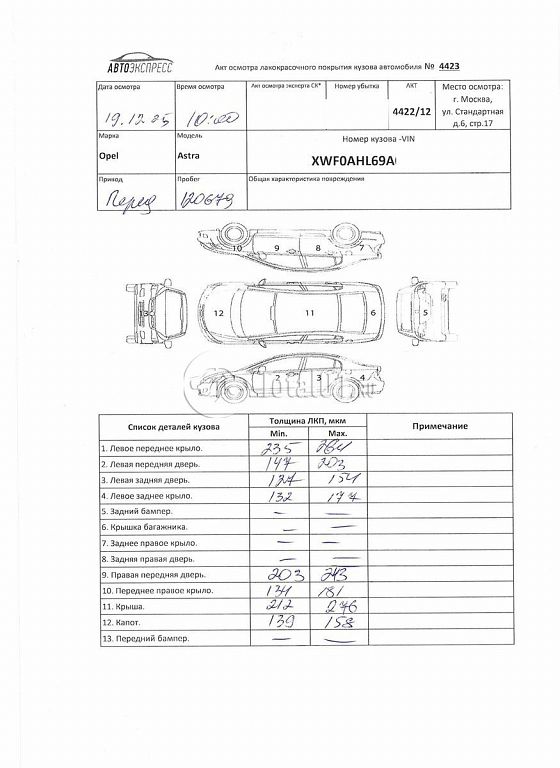 АВТОЭКСПРЕСС
Акт осмотра лакокрасочного покрытия кузова автомобиля № 4423
Дата осмотра Время осмотра Акт осмотра эксперта СК* Номер убытка ЛКТ Место осмотра:
г. Москва,
19.12.05 10:00 4422/12 ул. Стандартная
д.6, стр.17
Марка Модель Номер кузова -VIN
Opel Astra XWF0AHL69A
Привод Пробег Общая характеристика повреждений
Перед 120679
10 9 8 7
13 12 11 6 5
1 2 3 4
Список деталей кузова Толщина ЛКП, мкм Примечание
Min. Max.
1. Левое переднее крыло. 235 264
2. Левая передняя дверь. 147 203
3. Левая задняя дверь. 127 154
4. Левое заднее крыло. 132 177
5. Задний бампер. — —
6. Крышка багажника. — —
7. Заднее правое крыло. — —
8. Задняя правая дверь. — —
9. Правая передняя дверь. 203 243
10. Переднее правое крыло. 134 181
11. Крыша. 212 276
12. Капот. 139 158
13. Передний бампер. — —